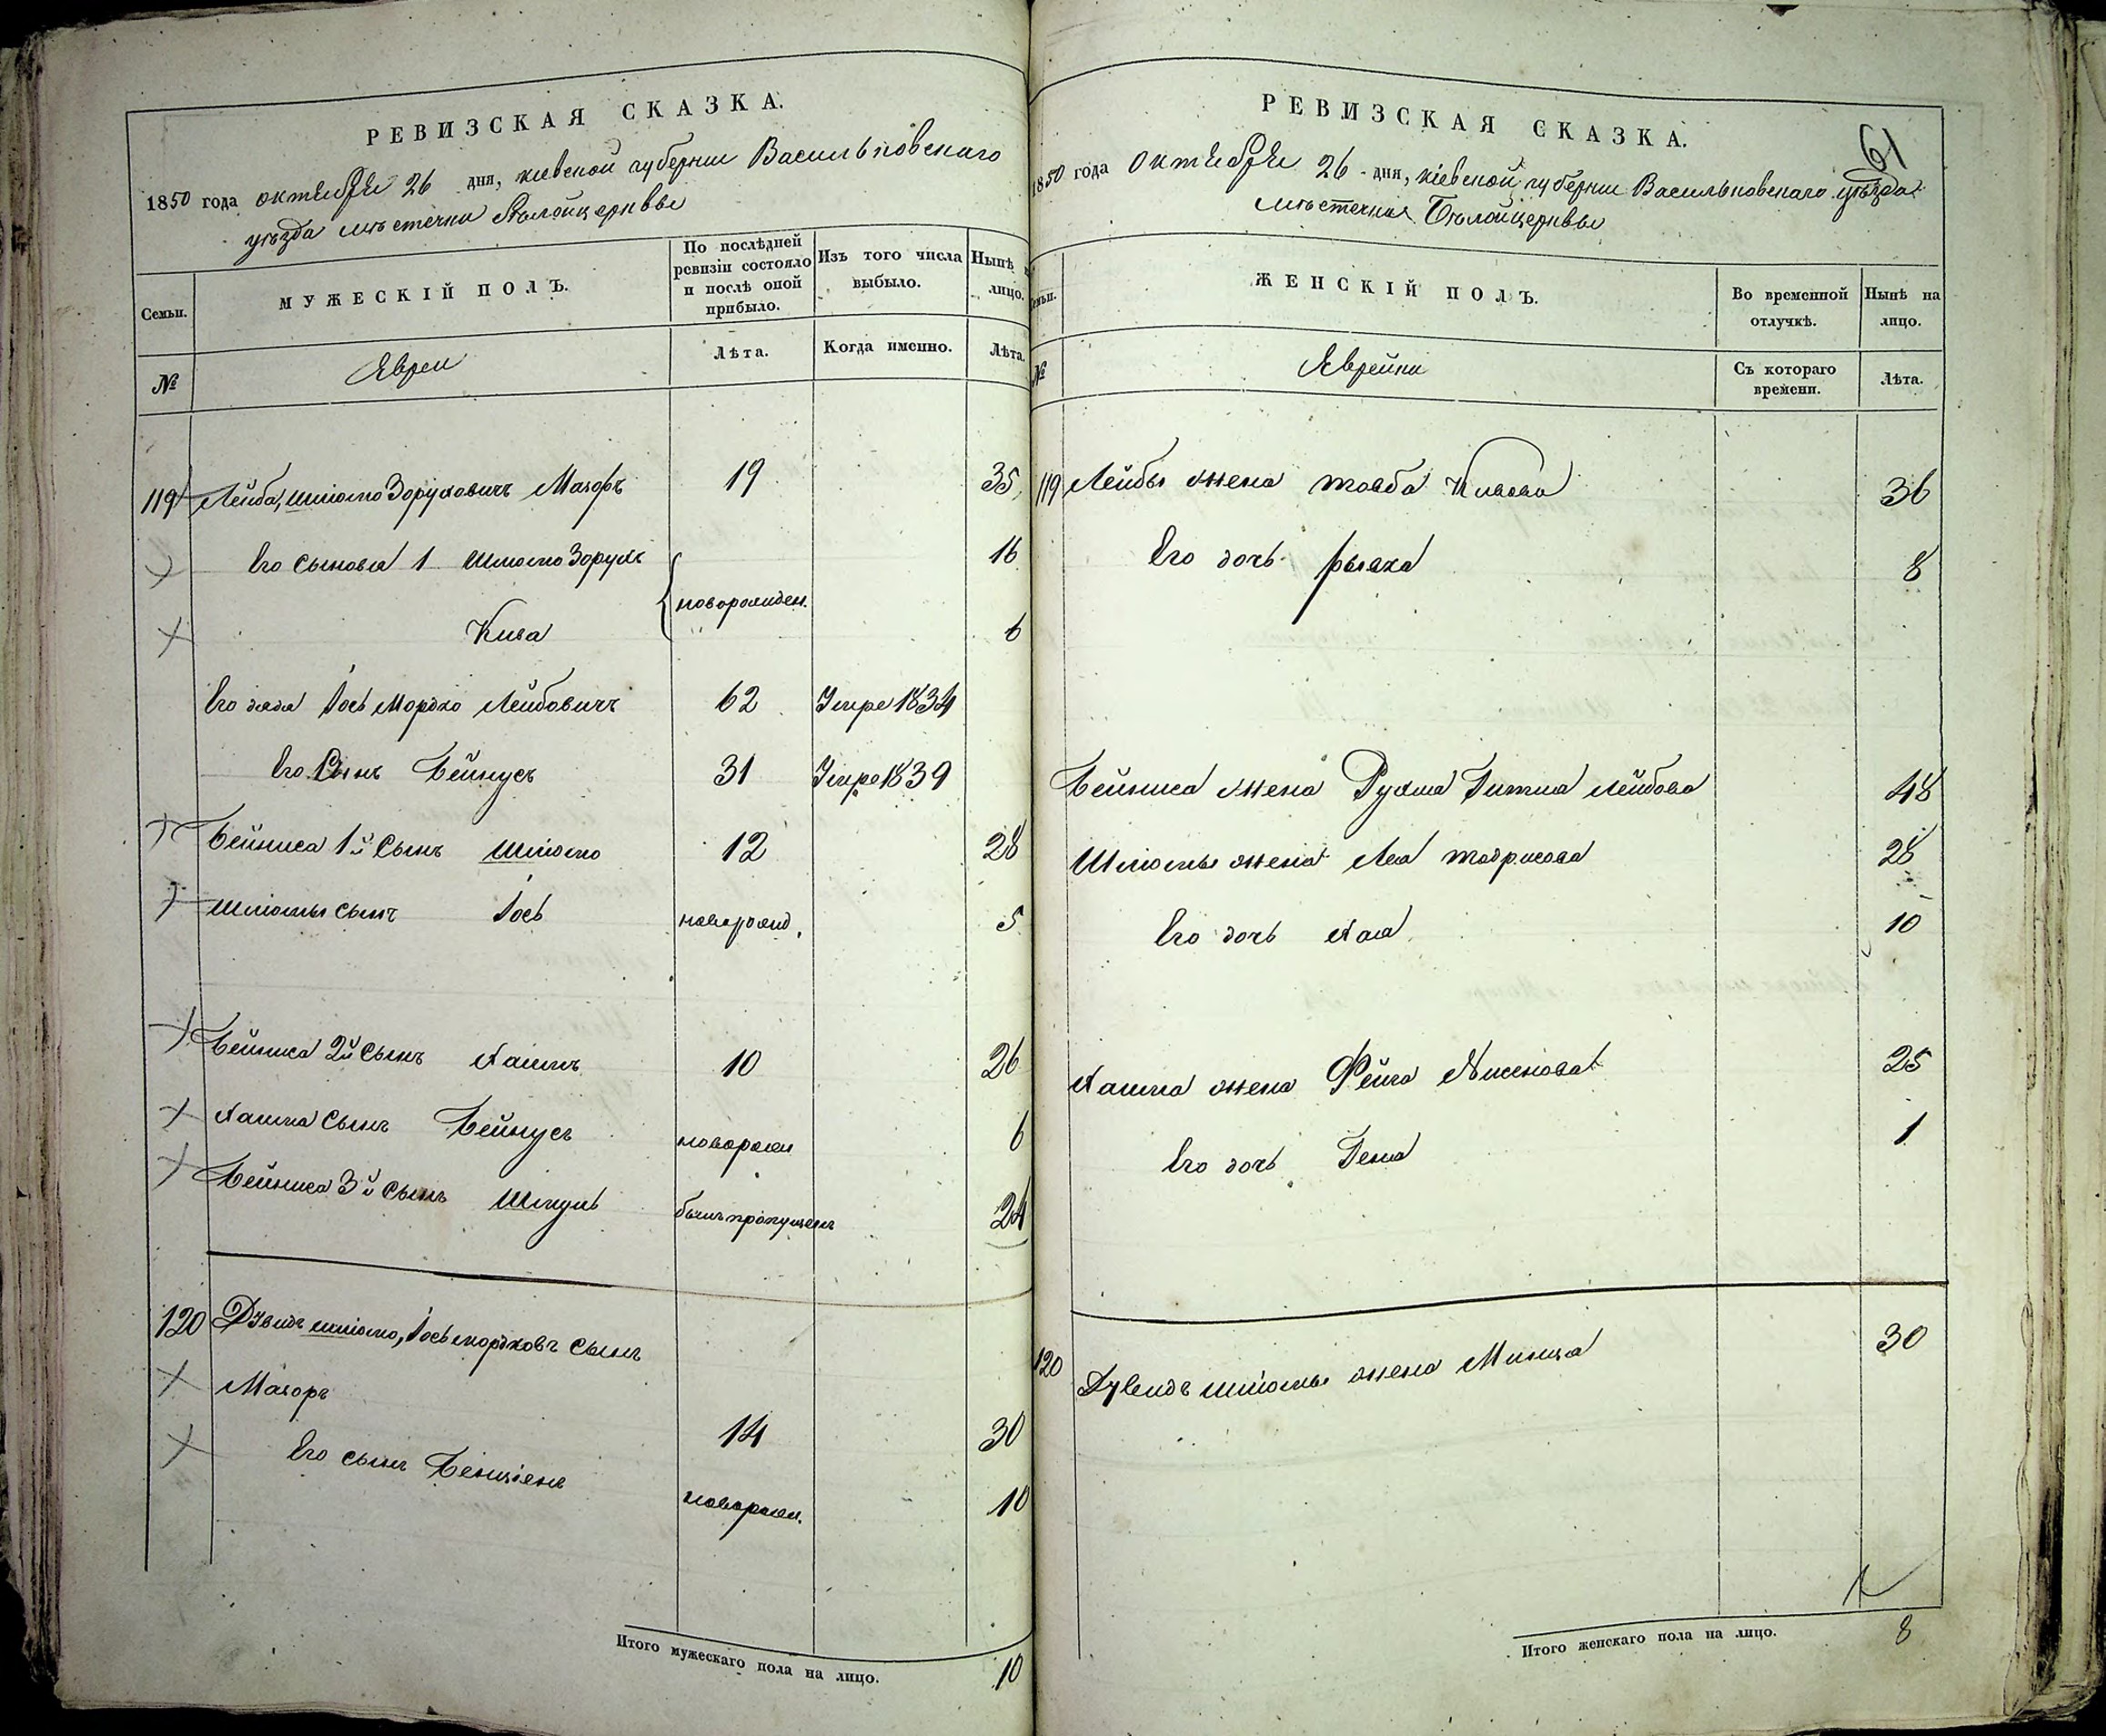 РЕВИЗСКАЯ СКАЗКА.
1850 года октября 26 дня, киевской губернии Васильковскаго
уѣзда мѣстечки Бѣлойцерквы
Семьи.
МУЖЕСКІЙ ПОЛЪ.
По послѣдней ревизіи состояло и послѣ оной прибыло.
Изъ того числа выбыло.
Нынѣ лицо.
№
Евреи
Лѣта.
Когда именно.
Лѣта.
119 Лейба, Шліомо Заруховичъ Мазоръ 19 35
Его сыновья 1 Шліомо Зорухъ 16
новорожден.
Кива 6
Его дядя Іось Мордко Лейбовичъ 62 Умре 1834
Его Сынъ Бейнусъ 31 Умре 1839
Бейниса 1й Сынъ Шліомо 12 28
Шліомы сынъ Іось новорожд. 5
Бейниса 2й Сынъ Хаимъ 10 26
Хаима Сынъ Бейнусъ новорожд 6
Бейниса 3й Сынъ Шмуль былъ пропущенъ 24
120 Дувидъ шліомо, Іосьмордковъ Сынъ
Мазоръ 14 30
Его сынъ Бенціенъ новорожд. 10
Итого мужескаго пола на лицо. 10
РЕВИЗСКАЯ СКАЗКА.
61
1850 года Октября 26 дня, кіевской губернии Васильковскаго уѣзда
мѣстечка Бѣлойцерквы
Семьи.
ЖЕНСКІЙ ПОЛЪ.
Во временной отлучкѣ.
Нынѣ на лицо.
№
Еврейки
Съ котораго времени.
Лѣта.
119 Лейбы жена Товба Кивова 36
Его дочь Рывка 8
Бейниса жена Рухма Гитля Лейбова 48
Шліомы жена Лея 28
Его дочь Хая 10
Хаима жена Фейга Нисенова 25
Его дочь Геня 1
120 Дувидъ шліомы жена Минца 30
Итого женскаго пола на лицо. 8